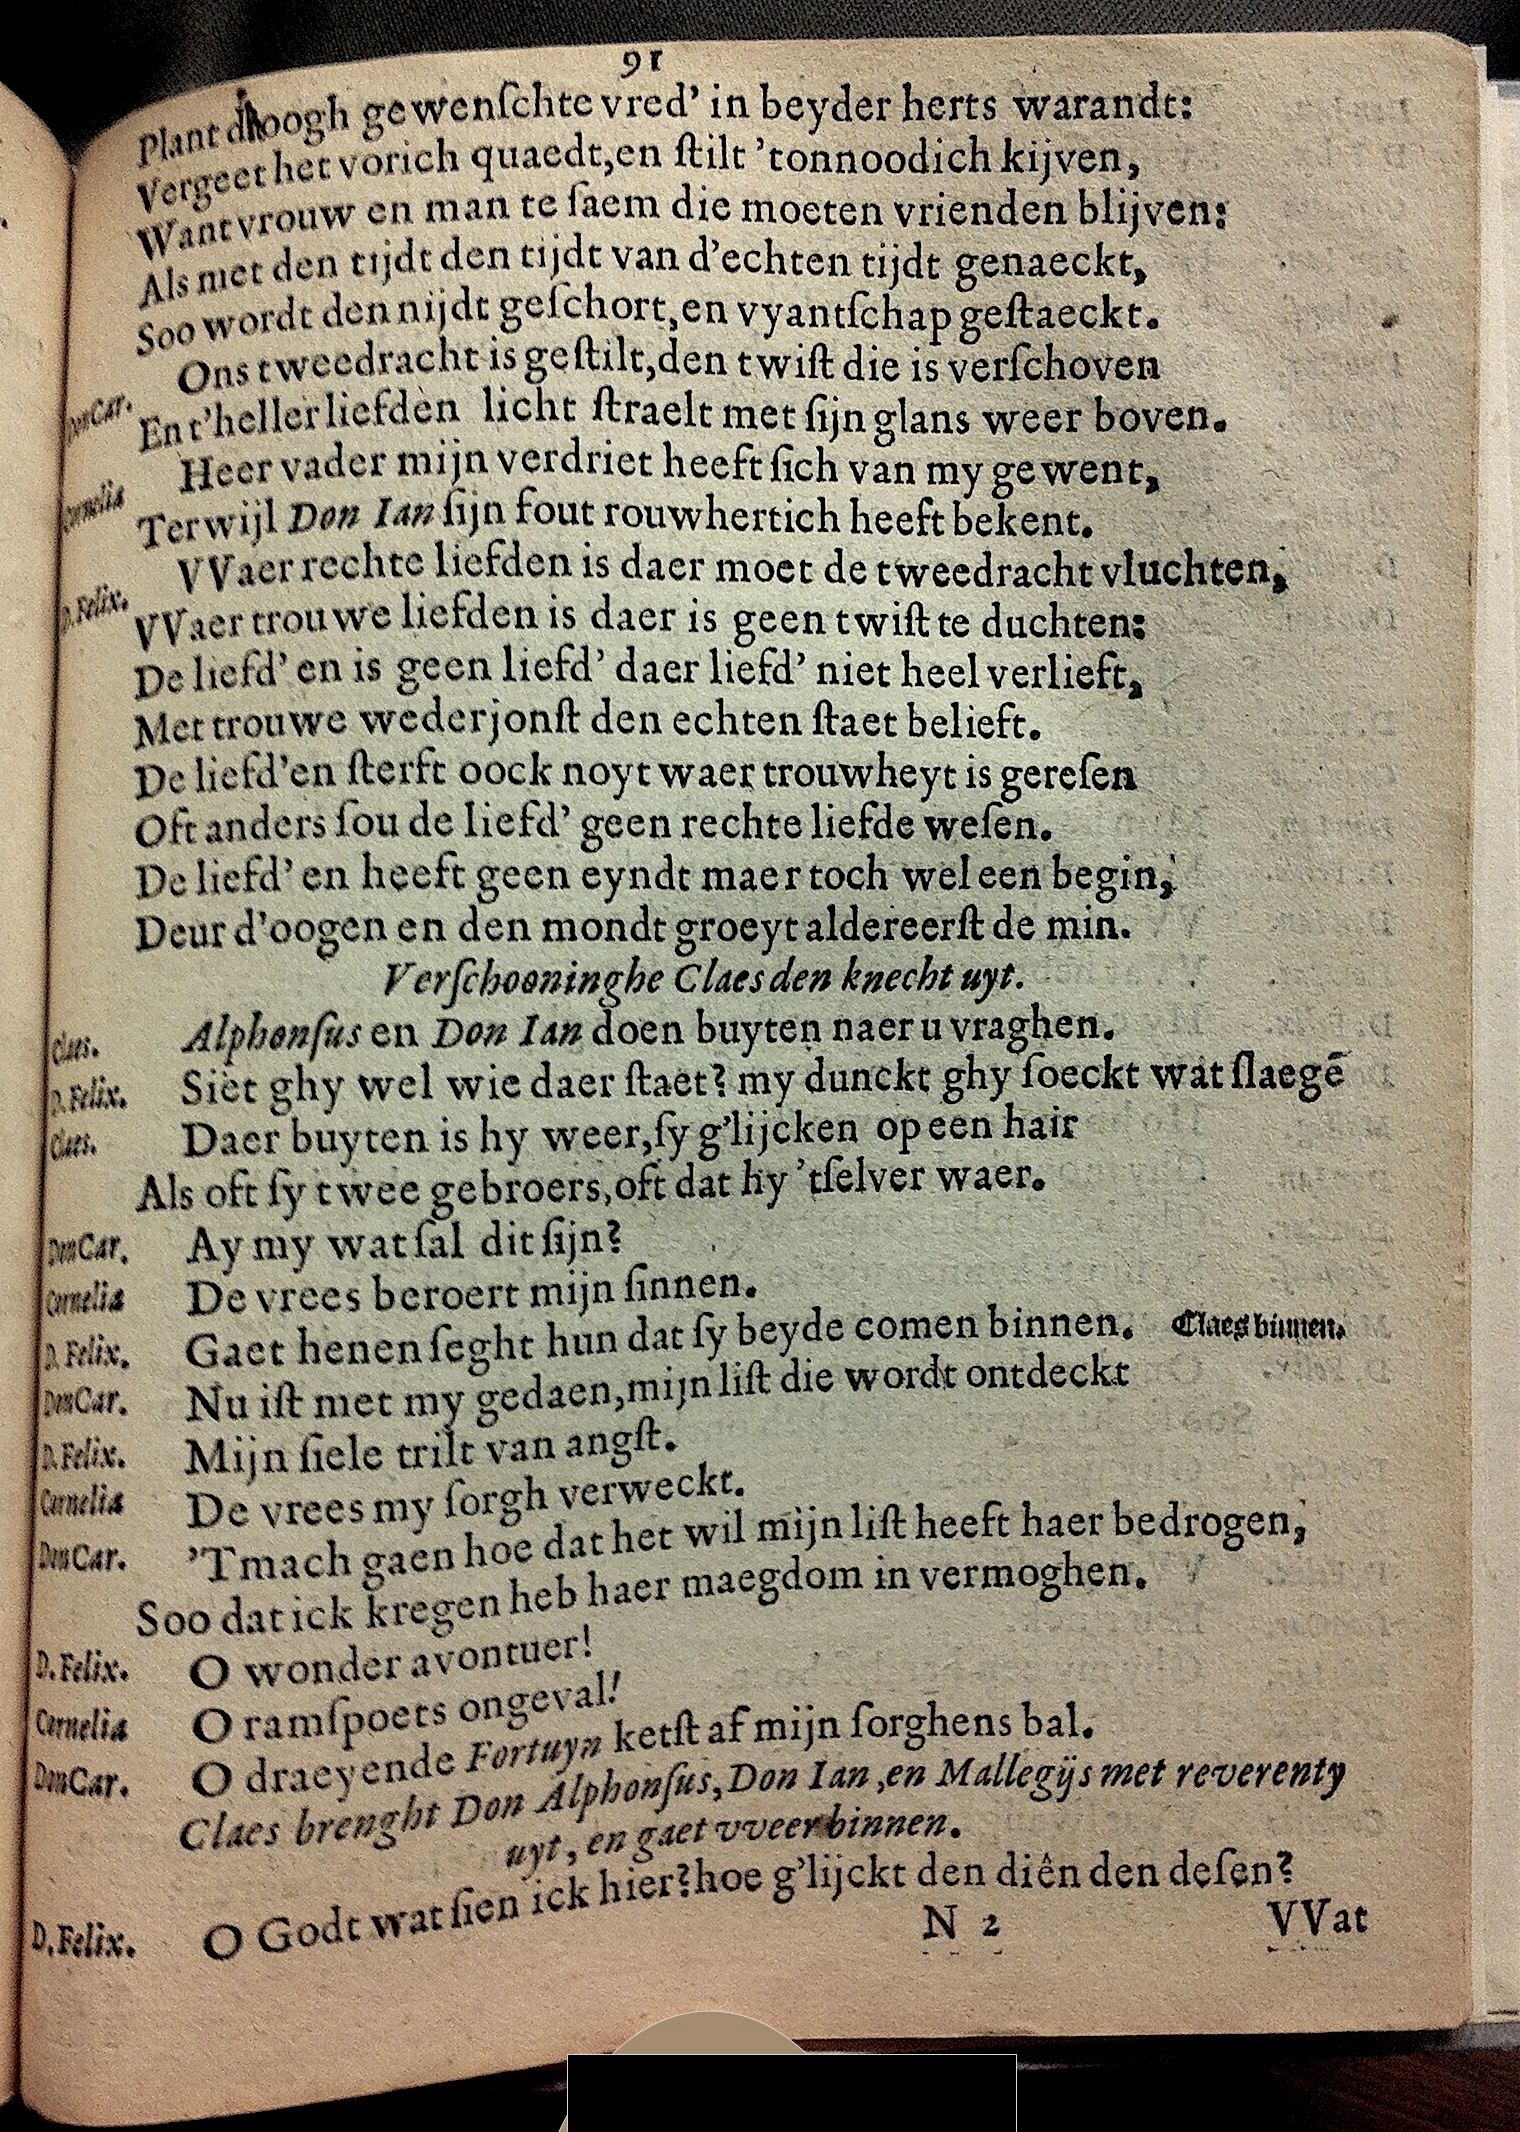 91
Plant d'hoogh gewenſchte vred' in beyder herts warandt:
Vergeet het vorich quaedt,en ſtilt 'tonnoodich kijven,
Want vrouw en man te ſaem die moeten vrienden blijven:
Als met den tijdt den tijdt van d'echten tijdt genaeckt,
Soo wordt den nijdt geſchort,en vyantſchap geſtaeckt.
DonCar. Ons tweedracht is geſtilt,den twiſt die is verſchoven
En t'heller liefden licht ſtraelt met ſijn glans weer boven.
Cornelia Heer vader mijn verdriet heeft ſich van my gewent,
Terwijl Don Ian ſijn fout rouwhertich heeft bekent.
D.Felix. VVaer rechte liefden is daer moet de tweedracht vluchten,
VVaer trouwe liefden is daer is geen twiſt te duchten:
De liefd' en is geen liefd' daer liefd' niet heel verlieft,
Met trouwe wederjonſt den echten ſtaet belieft.
De liefd'en ſterft oock noyt waer trouwheyt is gereſen
Oft anders ſou de liefd' geen rechte liefde weſen.
De liefd' en heeft geen eyndt maer toch wel een begin,
Deur d'oogen en den mondt groeyt aldereerſt de min.
Verſchooninghe Claes den knecht uyt.
Claes. Alphonſus en Don Ian doen buyten naer u vraghen.
D.Felix. Siet ghy wel wie daer ſtaet? my dunckt ghy ſoeckt wat ſlaegē
Claes. Daer buyten is hy weer,ſy g'lijcken op een hair
Als oft ſy twee gebroers,oft dat hy 'tſelver waer.
DonCar. Ay my wat ſal dit ſijn?
Cornelia De vrees beroert mijn ſinnen.
D.Felix. Gaet henen ſeght hun dat ſy beyde comen binnen. Claes binnen.
DonCar. Nu iſt met my gedaen,mijn liſt die wordt ontdeckt
D.Felix. Mijn ſiele trilt van angſt.
Cornelia De vrees my ſorgh verweckt.
DonCar. 'Tmach gaen hoe dat het wil mijn liſt heeft haer bedrogen,
Soo dat ick kregen heb haer maegdom in vermoghen.
D.Felix. O wonder avontuer!
Cornelia O ramſpoets ongeval!
DonCar. O draeyende Fortuyn ketſt af mijn ſorghens bal.
Claes brenght Don Alphonſus,Don Ian,en Mallegijs met reverenty
uyt,en gaet vveer binnen.
D.Felix. O Godt wat ſien ick hier?hoe g'lijckt den diên den deſen?
N 2 VVat